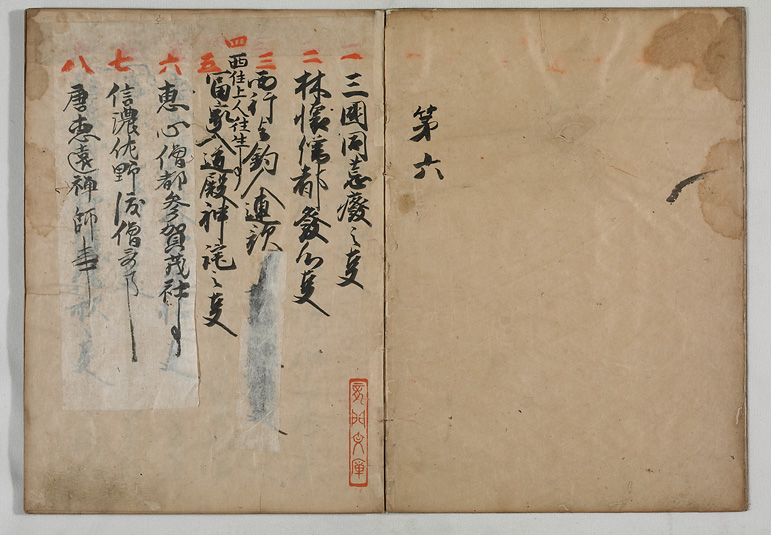 第六
一 三國同志癈之事
二 林懐僧都發心事
三 西行与釣人連歌
四 西住上人往生事
五 富家入道殿神詫之事
六 恵心僧都参賀茂社事
七 信濃佐野渡僧哥事
八 唐恵遠禅師事